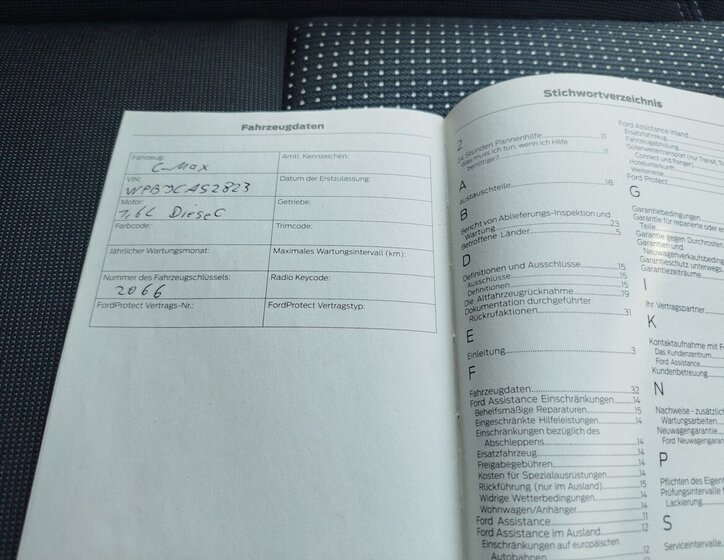 Fahrzeugdaten
Fahrzeug:
C-Max
Amtl. Kennzeichen:
VIN:
WPBJCAS2823
Datum der Erstzulassung:
Motor:
1,6L Diesel
Getriebe:
Farbcode:
Trimcode:
Jährlicher Wartungsmonat:
Maximales Wartungsintervall (km):
Nummer des Fahrzeugschlüssels:
2066
Radio Keycode:
FordProtect Vertrags-Nr.:
FordProtect Vertragstyp:
Stichwortverzeichnis
2
24 Stunden Pannenhilfe 11
Was muss ich tun, wenn ich Hilfe
benötige? 11
A
Austauschteile 18
B
Bericht von Ablieferungs-Inspektion und
Wartung 23
Betroffene Länder 5
D
Definitionen und Ausschlüsse 15
Ausschlüsse 15
Definitionen 15
Die Altfahrzeugrücknahme 19
Dokumentation durchgeführter
Rückrufaktionen 31
E
Einleitung 3
F
Fahrzeugdaten 32
Ford Assistance Einschränkungen 14
Behelfsmäßige Reparaturen 15
Eingeschränkte Hilfeleistungen 14
Einschränkungen bezüglich des
Abschleppens 14
Ersatzfahrzeug 14
Freigabegebühren 14
Kosten für Spezialausrüstungen 14
Rückführung (nur im Ausland) 15
Widrige Wetterbedingungen 14
Wohnwagen/Anhänger 14
Ford Assistance 11
Ford Assistance im Ausland 12
Einschränkungen auf europäischen
Autobahnen 12
Ford Assistance Inland
Ersatzfahrzeug
Fahrzeugabholung
Güterweitertransport (nur Transit,
Connect und Ranger)
Hotelunterkunft
Weiterreise
Ford Protect
G
Garantiebedingungen
Garantie für reparierte oder er
Teile
Garantie gegen Durchrosten
Garantien und
Neuwagenverkaufsbeding
Garantieschutz unterweg
Garantiezeiträume
I
Ihr Vertragspartner
K
Kontaktaufnahme mit F
Das Kundenzentrum
Ford Assistance
Kundenbetreuung
N
Nachweise - zusätzlic
Wartungsarbeiten
Neuwagengarantie
Ford Neuwagengarant
P
Pflichten des Eigen
Prüfungsintervalle f
Lackierung
S
Serviceintervalle